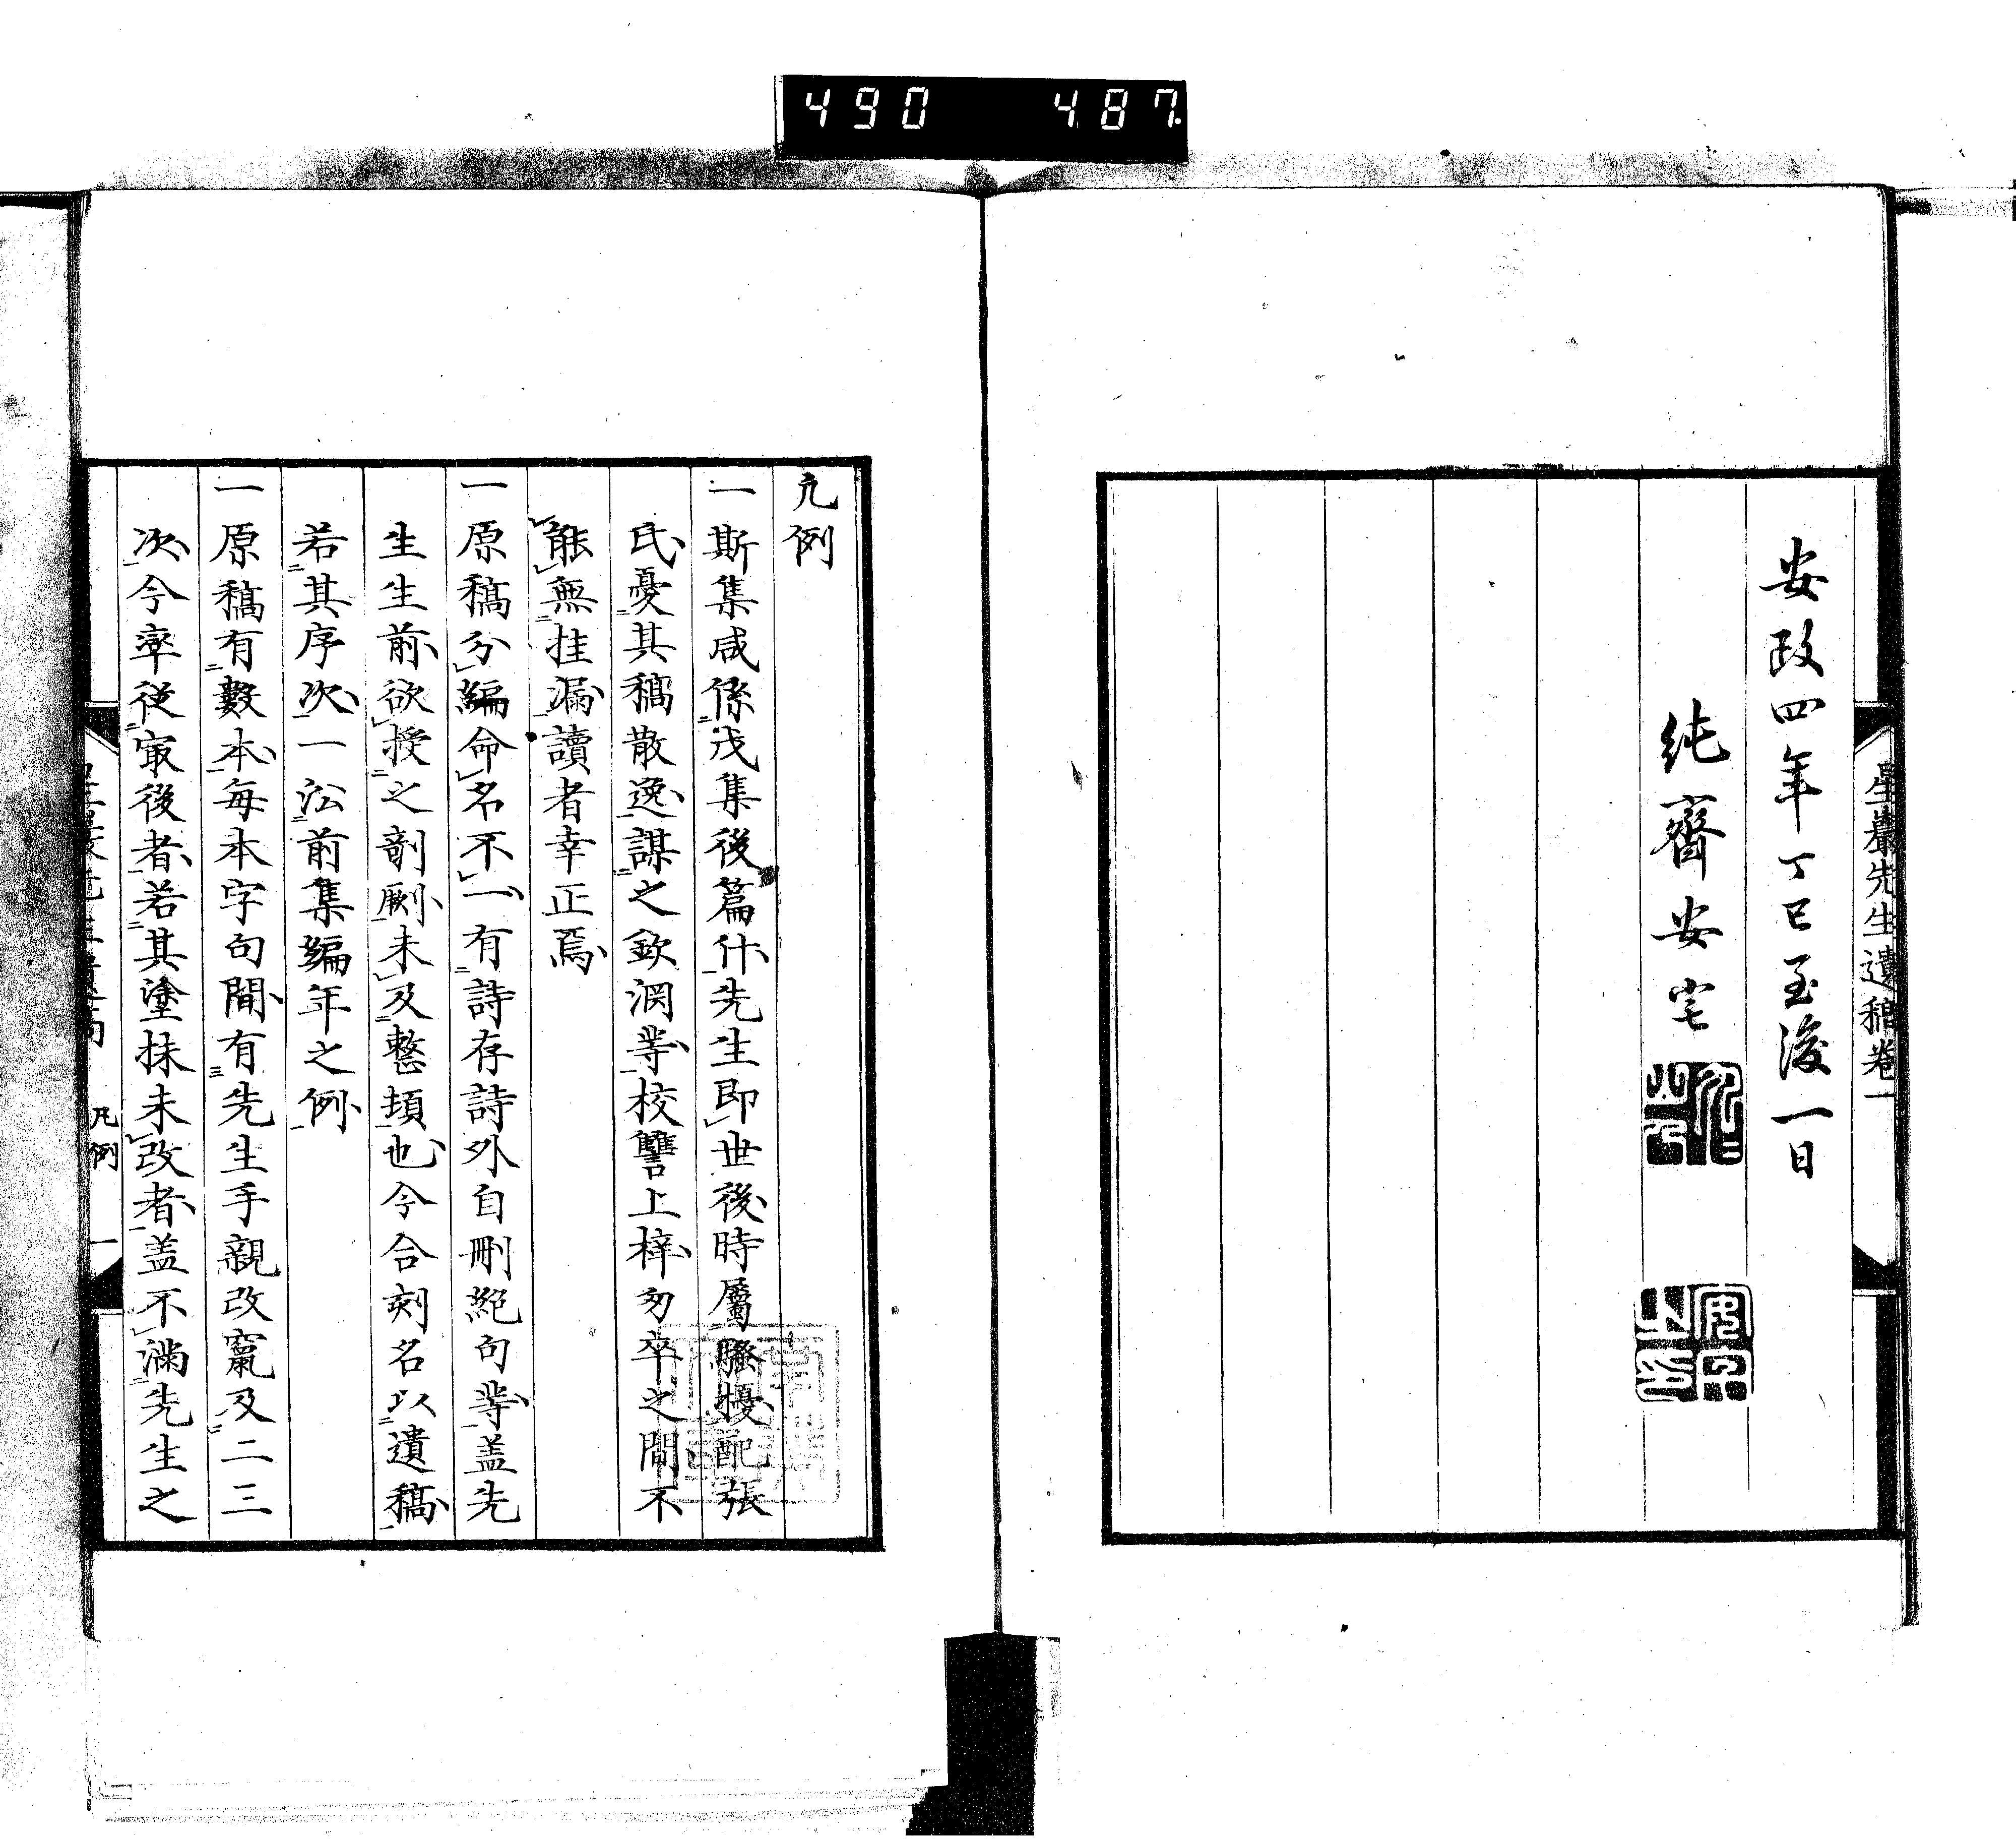 490 487
星巖先生遺稿卷一
安政四年丁巳至後一日
純齋安宅
凡例
一斯集咸係戊集後篇什先生即世後時屬騷擾配張
氏憂其稿散逸謀之欽浻輩校讐上梓匆卒之間不
能無挂漏讀者幸正焉
一原稿分編命名不一有詩存詩外自刪絕句等蓋先
生生前欲授之剞劂未及整頓也今合刻名以遺稿
若其序次一沿前集編年之例
一原稿有數本每本字句間有先生手親改竄及二三
次今率從冣後者若其塗抹未改者盖不滿先生之
凡例 一